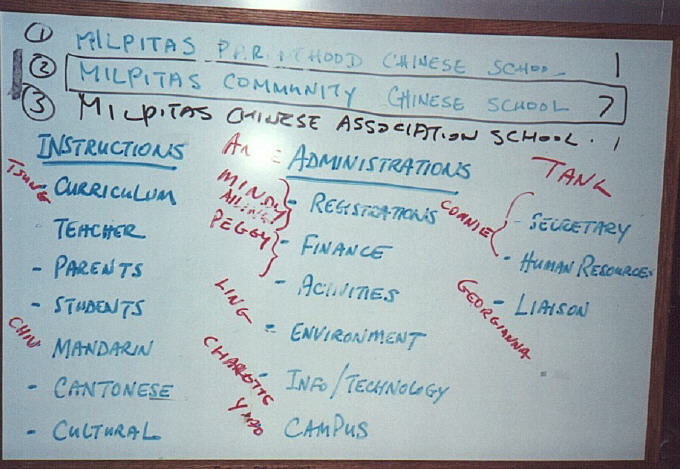 ① MILPITAS CHINESE SCHOOL 1
② MILPITAS COMMUNITY CHINESE SCHOOL 7
③ MILPITAS CHINESE ASSOCIATION SCHOOL. 1
INSTRUCTIONS
TSUNG
- CURRICULUM
TEACHER
- PARENTS
- STUDENTS
CHIN
MANDARIN
- CANTONESE
- CULTURAL
ADMINISTRATIONS
MINDY
- REGISTRATIONS
PEGGY
- FINANCE
- ACTIVITIES
LING
- ENVIRONMENT
CHARLOTTE
- INFO/TECHNOLOGY
CAMPUS
TANG
CONNIE
- SECRETARY
- HUMAN RESOURCES
GEORGIANNA
- LIAISON